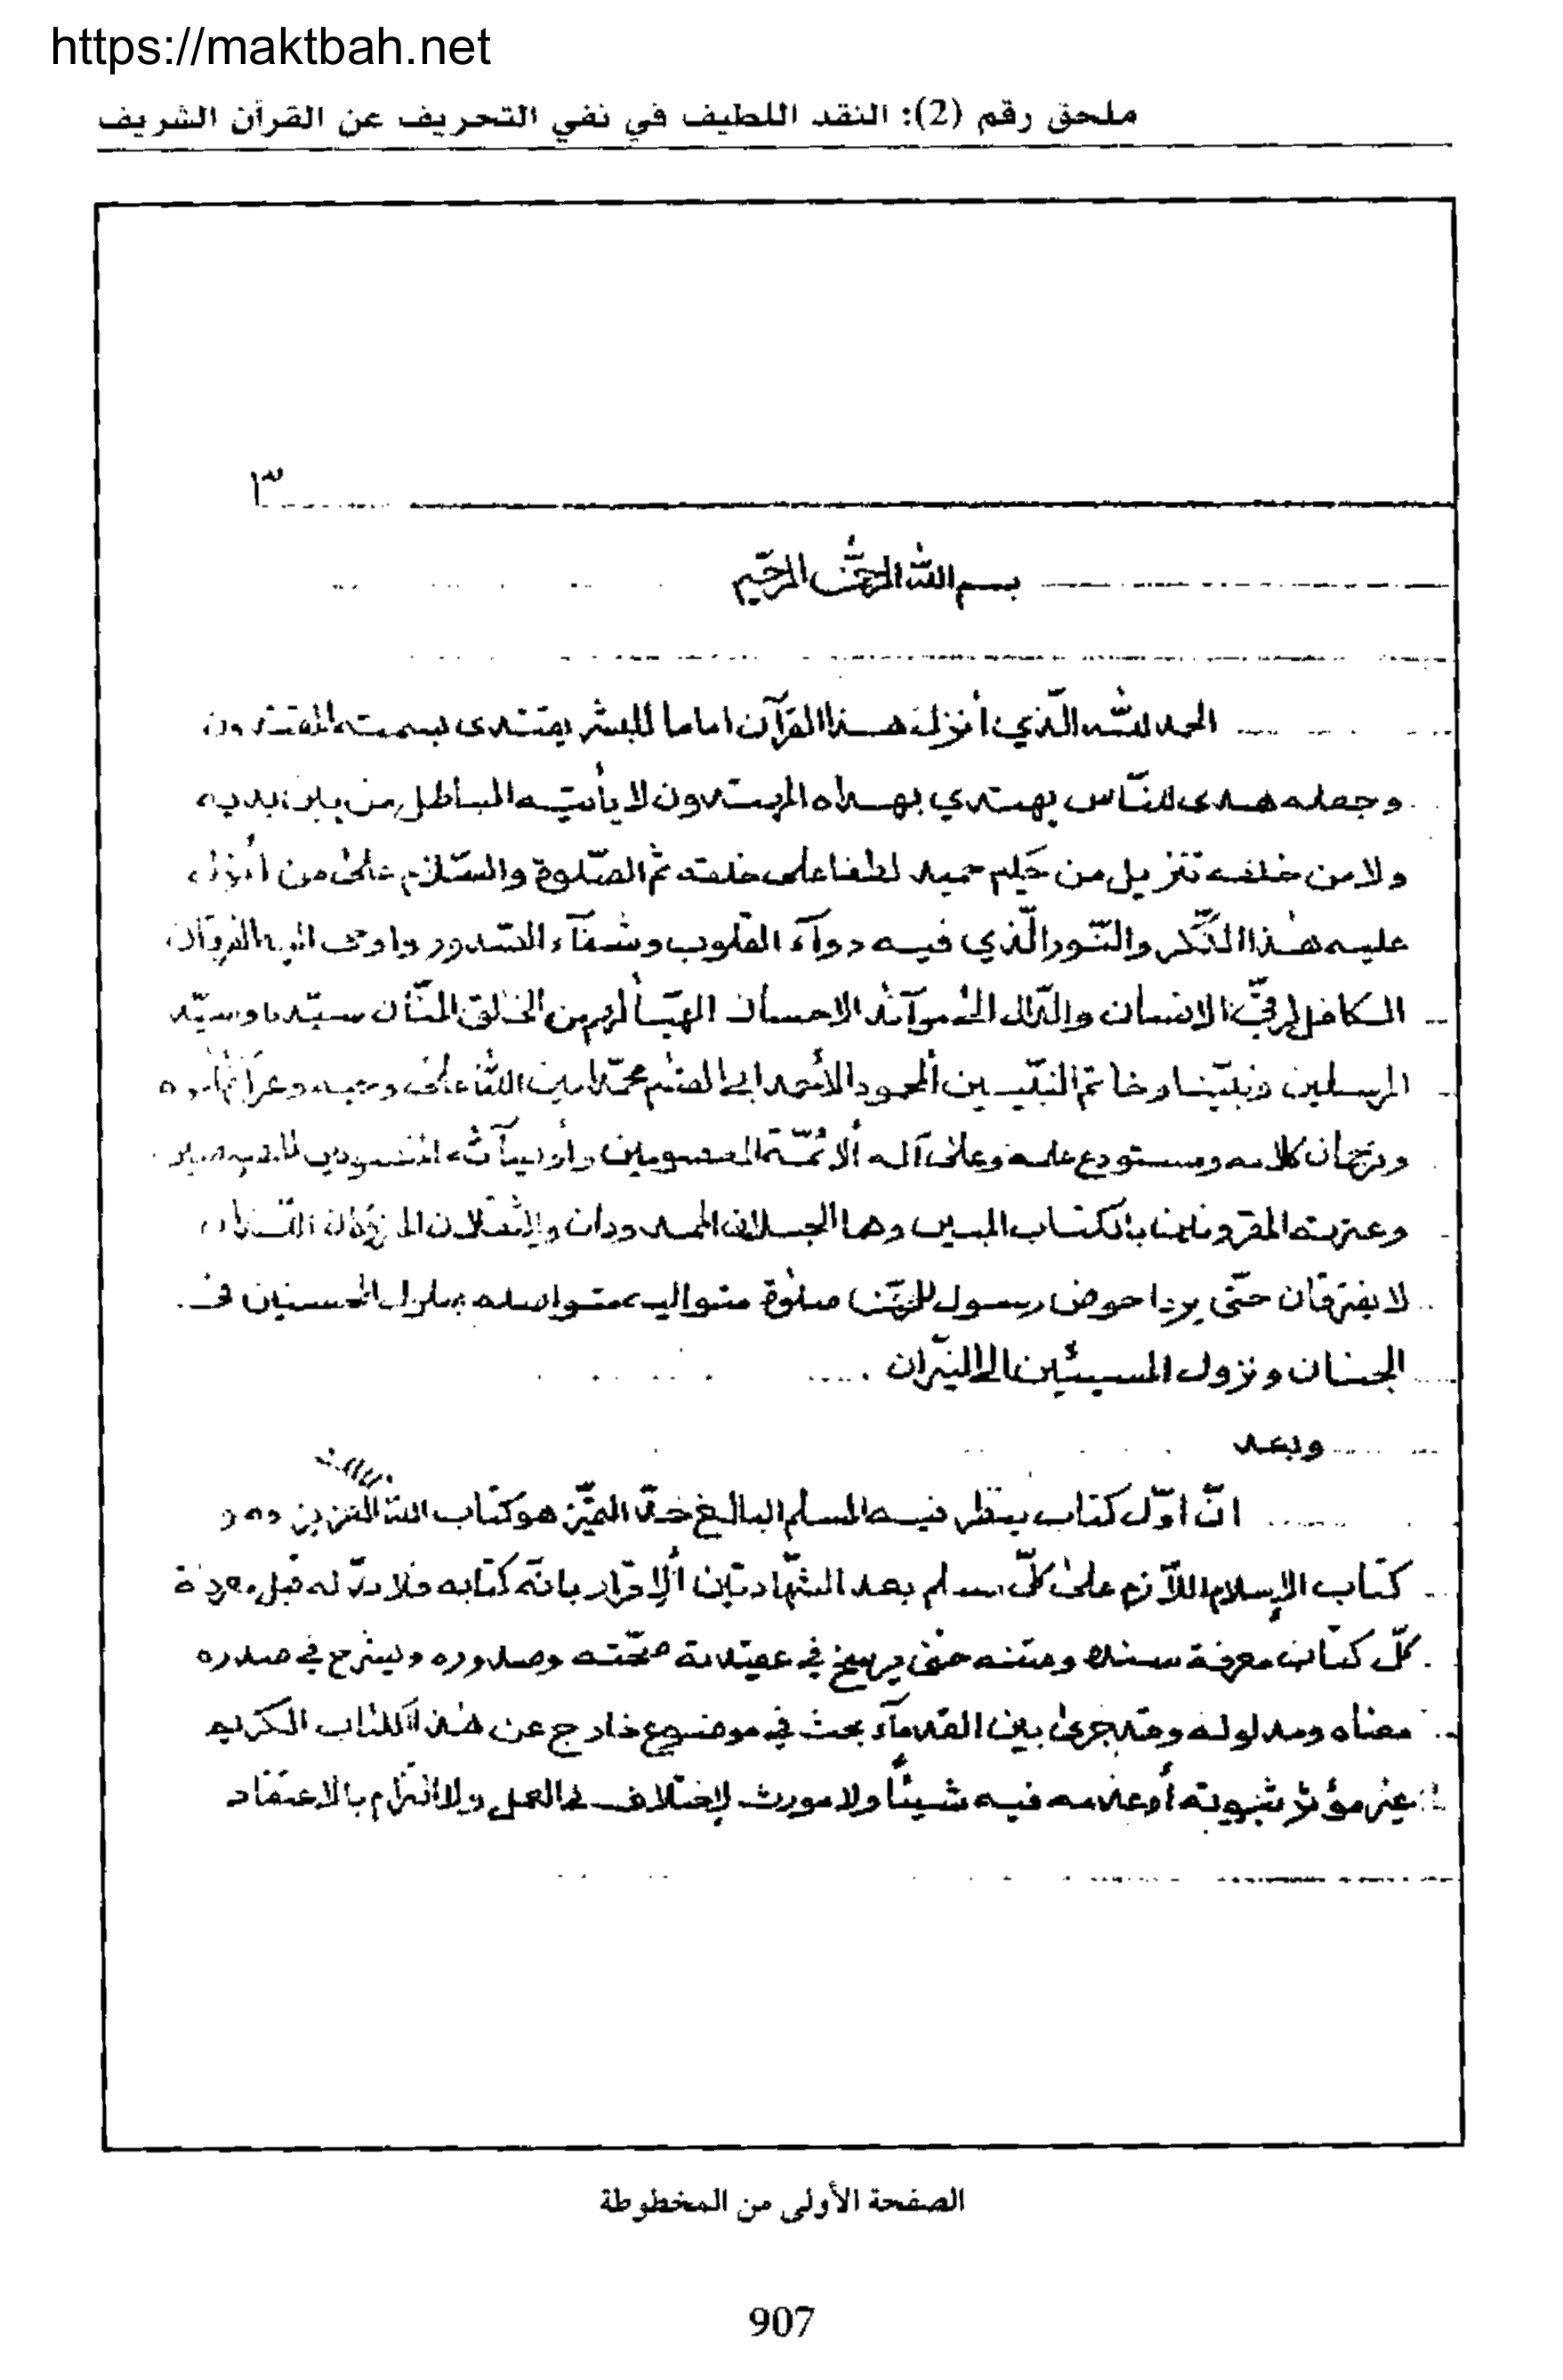 https://maktbah.net
ملحق رقم (2): النقد اللطيف في نفي التحريف عن القرآن الشريف
٣
بسم الله الرحمن الرحيم
الحمد لله الّذي أنزل هذا القرآن اماما للبشر يقتدى بسمته المقتدون
وجعله هدى للنّاس يهتدي بهداه المهتدون لا يأتيه الباطل من بين يديه
ولا من خلفه تنزيل من حكيم حميد لطفا على خلقه ثم الصّلوة والسّلام على من أنزل
عليه هذا الذّكر والنّور الّذي فيه دوآء القلوب وشفآء الصّدور واوحى اليه الفرقان
الكافل لرقيّ الانسان والدّال الى موآئد الاحسان المهيّأ لهم من الخالق المنّان سيّدنا وسيّد
المرسلين ونبيّنا وخاتم النبيّين المحمود الأحمد ابي القاسم محمّد امين الله على وحيه وعزآئم أمره
وترجمان كلامه ومستودع علمه وعلى آله الأئمّة المعصومين وأوصيآئه
وعترته المقرونين بالكتاب المبين وهما الحبلان الممدودان والثقلان اللذان
لا يفترقان حتّى يردا حوض رسول الرحمن صلوة متوالية متواصلة بحلول المحسنين في
الجنان ونزول المسيئين الى النيّران
وبعد
انّ اوّل كتاب ينظر فيه المسلم البالغ حدّ التميّز هو كتاب الله العزيز وهو
كتاب الإسلام اللّآزم على كلّ مسلم بعد الشّهادتين ألإقرار بانّه كتابه فلا بدّ له قبل معرفة
كلّ كتاب معرفة سنده ومتنه حتى يرسخ في عقيدته صحّته وصدوره وينشرح في صدره
معناه ومدلوله وقد جرى بين القدمآء بحث في موضوع خارج عن هذا الكتاب الكريم
غير مؤثر ثبوته أو عدمه فيه شيئاً ولا مورث لإختلاف في العمل ولا التزام بالاعتقاد
الصفحة الأولى من المخطوطة
907